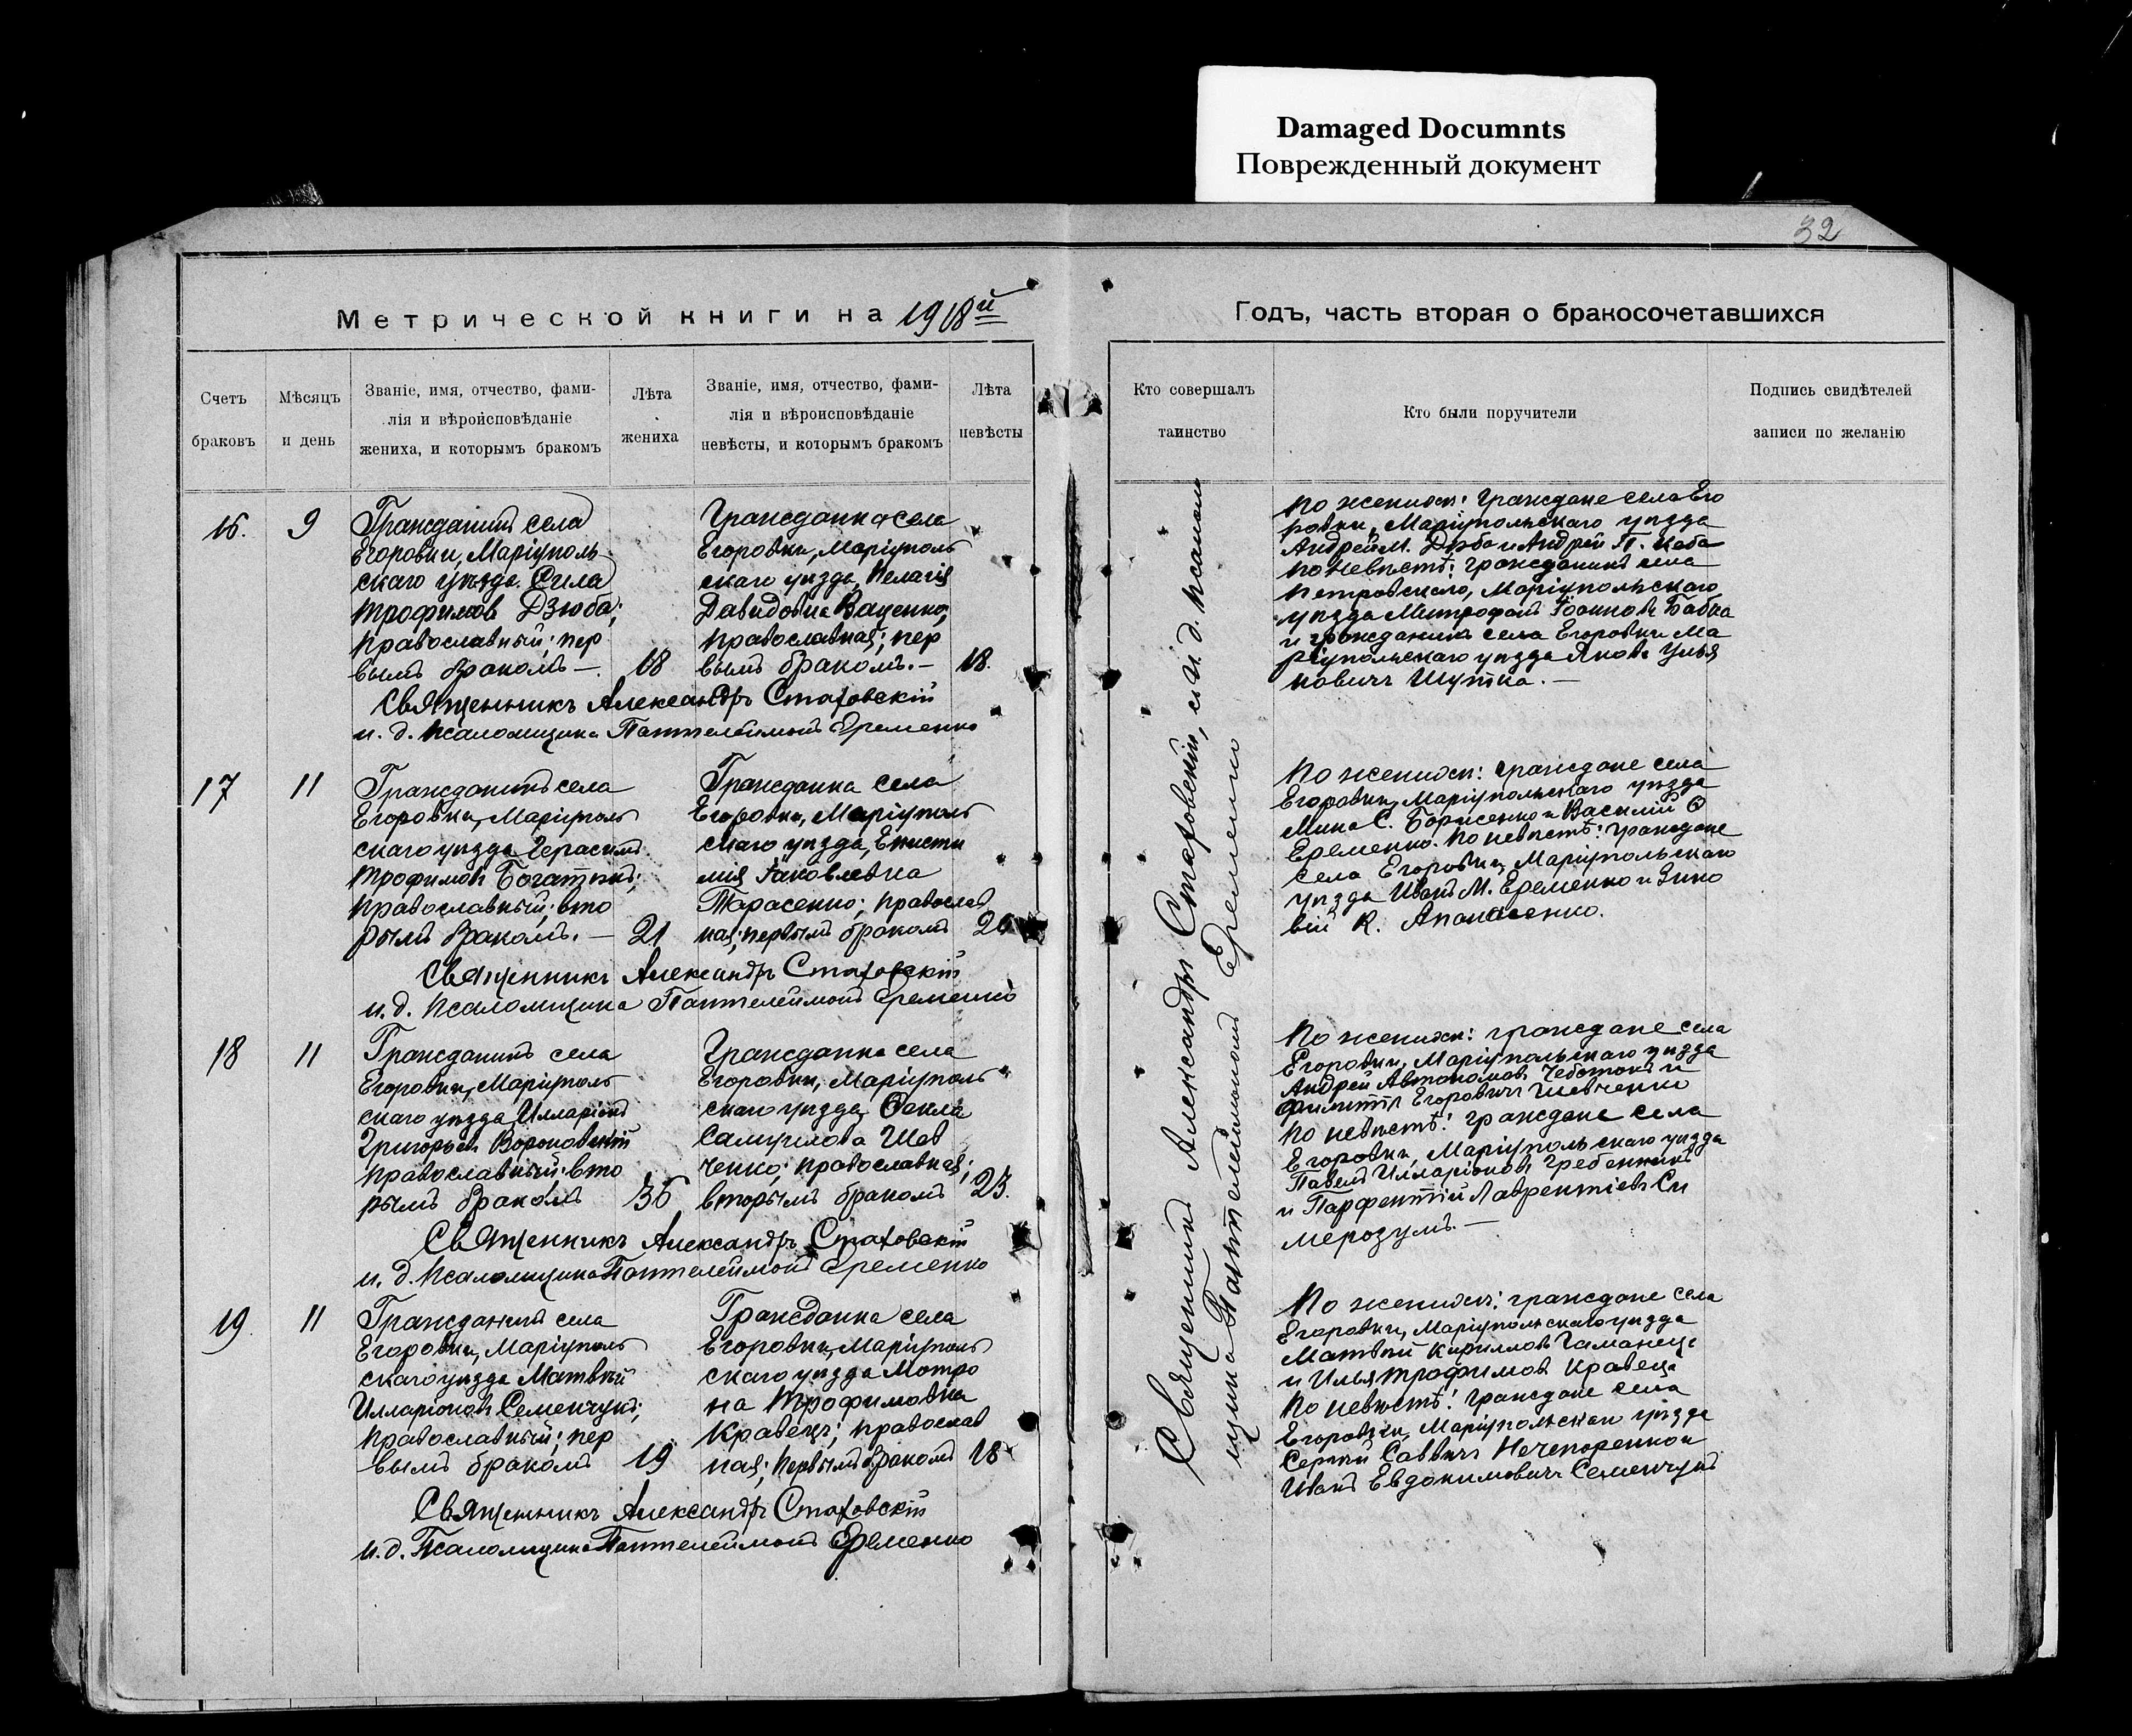 Damaged Documnts
Поврежденный документ
32
Метрической книги на 1918й
Годъ, часть вторая о бракосочетавшихся
Счетъ браковъ
Мѣсяцъ и день
Званіе, имя, отчество, фами-
лія и вѣроисповѣданіе
жениха, и которымъ бракомъ
Лѣта жениха
Званіе, имя, отчество, фами-
лія и вѣроисповѣданіе
невѣсты, и которымъ бракомъ
Лѣта невѣсты
Кто совершалъ таинство
Кто были поручители
Подпись свидѣтелей
записи по желанію
16.
9
Гражданинъ села
Егоровки, Маріуполь
скаго уѣзда Сила
Трофимовъ Дзюба;
православный; пер
вымъ бракомъ —
18
Гражданка села
Егоровки, Маріуполь
скаго уѣзда, Пелагія
Давидовна Ваценко;
православная; пер
вымъ бракомъ. —
18.
Священникъ Александръ Стаховскій
и. д. псаломщика Пантелеймонъ Еременко
17
11
Гражданинъ села
Егоровки, Маріуполь
скаго уѣзда Герасимъ
Трофимовъ
православный; вто
рымъ бракомъ. —
21
Гражданка села
Егоровки, Маріуполь
скаго уѣзда,
мія Іаковлевна
Тарасенко; православ
ная; первымъ бракомъ
20
Священникъ Александръ Стаховскій
и. д. псаломщика Пантелеймонъ Еременко
18
11
Гражданинъ села
Егоровки, Маріуполь
скаго уѣзда, Илларіонъ
Григорьевъ Вороновскій
православный; вто
рымъ бракомъ
36
Гражданка села
Егоровки, Маріуполь
скаго уѣзда, Ѳекла
Самуилова Шев
ченко; православная;
вторымъ бракомъ
23.
Священникъ Александръ Стаховскій
и. д. псаломщика Пантелеймонъ Еременко
19
11
Гражданинъ села
Егоровки, Маріуполь
скаго уѣзда Матвѣй
Илларіоновъ Семенчукъ;
православный; пер
вымъ бракомъ
19
Гражданка села
Егоровки, Маріуполь
скаго уѣзда Мотро
на Трофимовна
Кравець; православ
ная; первымъ бракомъ
18
Священникъ Александръ Стаховскій
и. д. Псаломщика Пантелеймонъ Еременко
Священникъ Александръ Стаховскій, и и. д. псалом
щика Пантелеймонъ Еременко
По женихѣ: граждане села Его
ровки, Маріупольскаго уѣзда
Андрей М. Дзюба и Андрей П.
по невѣстѣ: гражданинъ села
Петровскаго, Маріупольскаго
уѣзда Митрофанъ
и гражданинъ села Егоровки Ма
ріупольскаго уѣзда Яковъ Улья
новичъ Шутка. —
По женихѣ: граждане села
Егоровки, Маріупольскаго уѣзда
Мина С. Борисенко и Василій Ѳ
Еременко. По невѣстѣ: граждане
села Егоровки, Маріупольскаго
уѣзда Иванъ М. Еременко и Зино
вій К.
По женихѣ: граждане села
Егоровки, Маріупольскаго уѣзда
Андрей Автономовъ Чеботокъ и
Филиппъ Егоровичъ Шевченко
по невѣстѣ: граждане села
Егоровки, Маріупольскаго уѣзда
Павелъ Илларіоновъ Гребенникъ
и Парфентій Лаврентіевъ Ски
мерозумъ. —
По женихѣ: граждане села
Егоровки, Маріупольскаго уѣзда
Матвѣй Кирилловъ Таманецъ
и Илья Трофимовъ Кравець
По невѣстѣ: граждане села
Егоровки, Маріупольскаго уѣзда
Сергѣй Саввичъ Нечепоренко и
Иванъ Евдокимовичъ Семенчукъ